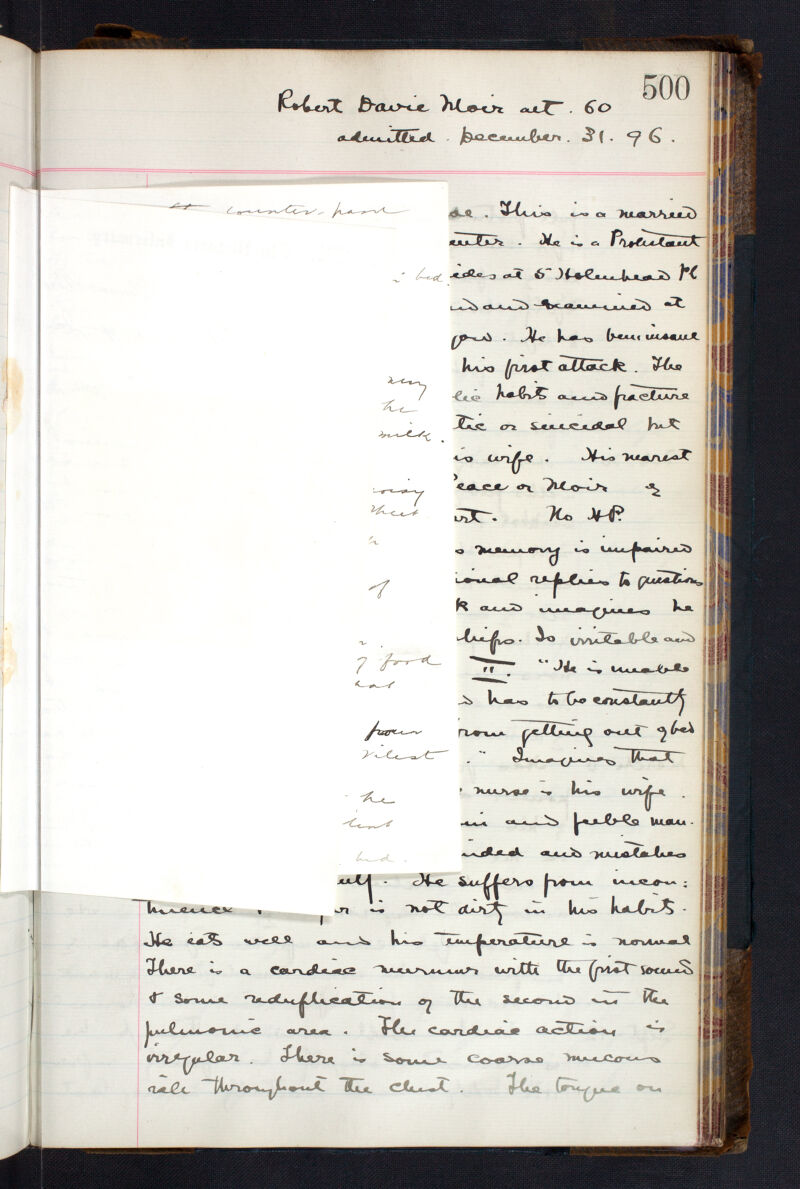 500
Robert Davie Moir aet. 60
admitted. December. 31. 96.
counter-pane
se. This is a married
He is a Protestant
bed.
ides at 5 Holmhead Pl
and examined at
gow. He has been insane
his first attack. The
very
lic habits and fracture
he
tic or suicidal but
milk.
is wife. His nearest
noisy
Peace or Moir
sheet
No H.P.
s memory is impaired
ional replies to questions
of
k and imagines he
ships. Is irritable and
of food
II. "He is unable
not
s has to be constantly
from
rom getting out of bed
vilest
." Imagines that
he
nurse is his wife.
in and feeble man.
bed.
inded and mistakes
self. He suffers from incon:
tinence is not dirty in his habits.
He eats well and his temperature is normal
There is a cardiac murmur with the first sound
& some reduplication of the second in the
pulmonic area. The cardiac action is
irregular. There is some coarse mucous
râle throughout the chest. The tongue on